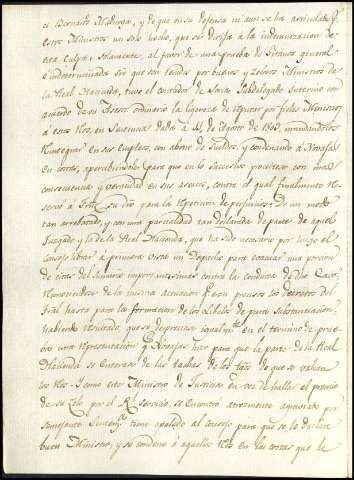 n. Bernardo Madurga, y de que en su defensa ni aun se ha articulado p.r
estos Ministros un solo hecho, que se dirija a la indemnizacion de
esta Culpa; solamente, al favor de una prueba de Testigos general
e indeterminada sin que son tenidos por buenos y zelosos Ministros de
la Real Hacienda, tuvo el contador de Soria Subdelegado Interino con
acuerdo de su Asesor ordinario la ligereza de reputar por fieles Ministros
a estos Reos, en Sentencia dada a 11 de Agosto de 1803, mandandoles
reintegrar en sus empleos, con abono de sueldos, y condenando a Novajas
en costas, apercibiendole para que en lo succesivo procediese con mas
consecuencia y veracidad en sus asertos, contra el qual finalmente re-
servo a su dro para la repeticion de perjuicios: De un modo
tan arrebatado, y con una parcialidad tan declarada de parte de aquel
Juzgado y la de la Real Hacienda, que ha sido necesario por luego el
Consejo librar a primera vista un Despacho para evacuar una porcion
de citas del Sumario importantisimas contra la conducta de dhos Caros
de la misma actuacion q.e con precoces los Decretos del
Fiscal hasta para la formacion de los Libelos de pura substanciacion,
habiendo resultado, que se desprecio igualm.te en el termino de prue-
ba una representacion q.e Novajas hizo para que la parte de la Real
Hacienda se enterase de las tachas de los Tgos de que se valian
los Reos. I como este Ministro de Justicia en vez de hallar el premio
de su Zelo por el R.l servicio, se encontró atrozmente agraviado por
semejante Senten.a tiene apelado al Consejo para que se le declare
buen Ministro, y se condene a aquellos Reos en las costas que le